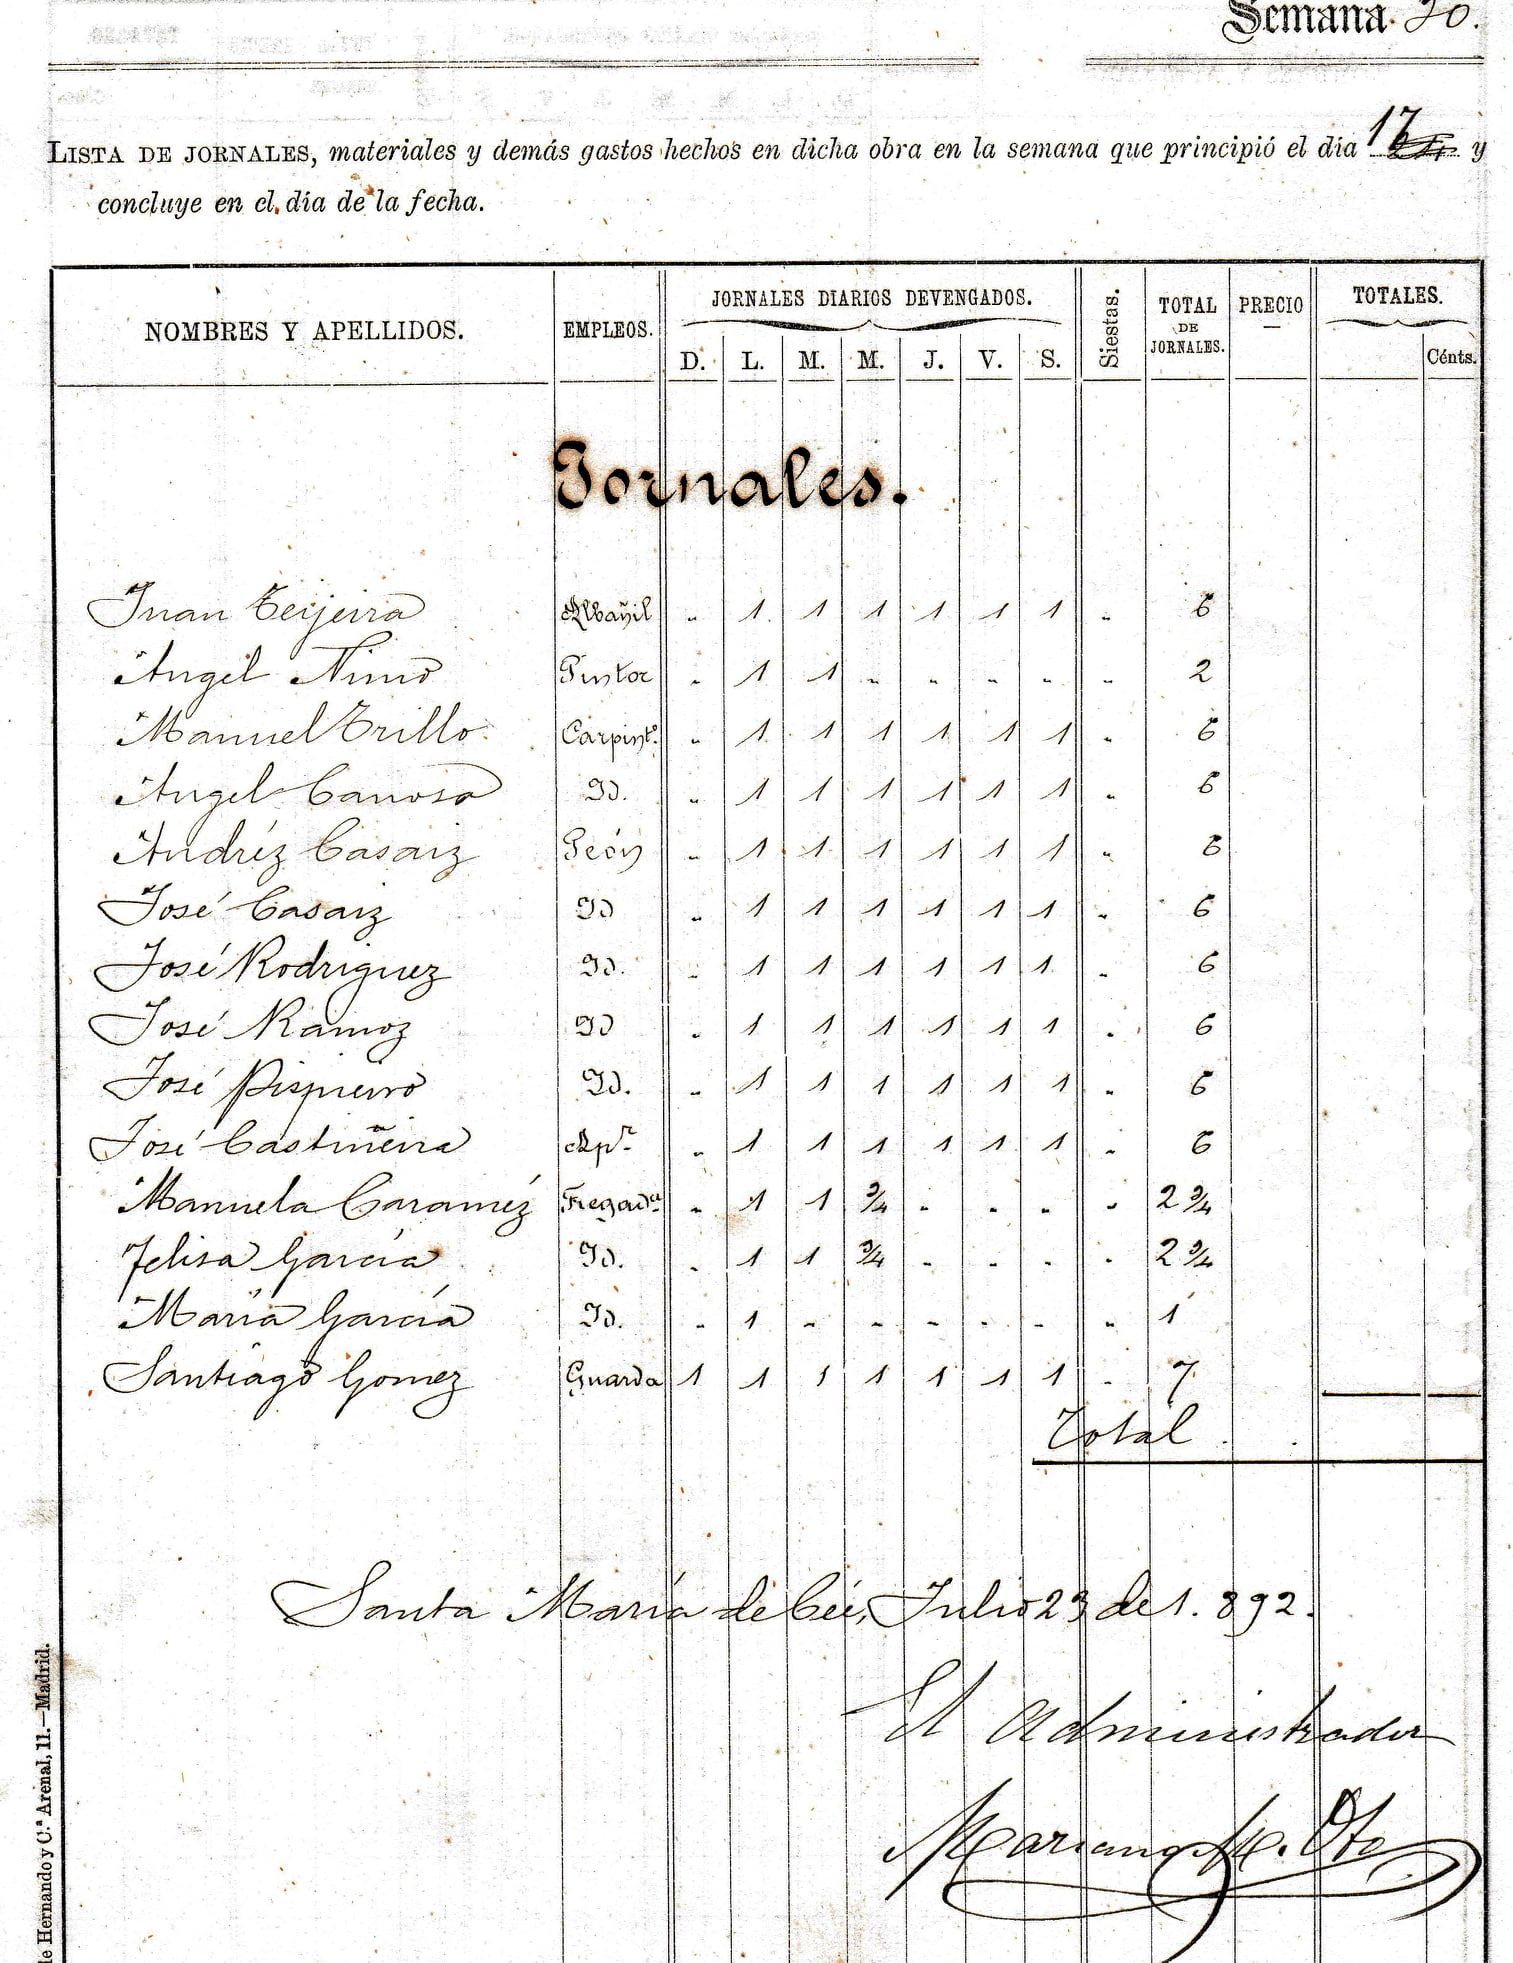 Semana 30.
LISTA DE JORNALES, materiales y demás gastos hechos en dicha obra en la semana que principió el día 17 y
concluye en el día de la fecha.
NOMBRES Y APELLIDOS. EMPLEOS. JORNALES DIARIOS DEVENGADOS. Siestas. TOTAL DE JORNALES. PRECIO TOTALES.
D. L. M. M. J. V. S. Cénts.
Jornales.
Juan Teijeira Albañil " 1 1 1 1 1 1 " 6
Angel Nimo Pintor " 1 1 " " " " " 2
Manuel Trillo Carpint.º " 1 1 1 1 1 1 " 6
Angel Canosa Id. " 1 1 1 1 1 1 " 6
Andréz Casaiz Peón " 1 1 1 1 1 1 " 6
José Casaiz Id " 1 1 1 1 1 1 " 6
José Rodriguez Id. " 1 1 1 1 1 1 " 6
José Ramoz Id " 1 1 1 1 1 1 " 6
José Piñeiro Id. " 1 1 1 1 1 1 " 6
José Castiñeira Apr. " 1 1 1 1 1 1 " 6
Manuela Caraméz Fregad.ª " 1 1 3/4 " " " " 2 3/4
Felisa García Id. " 1 1 3/4 " " " " 2 3/4
María García Id. " 1 " " " " " " 1
Santiago Gomez Guarda 1 1 1 1 1 1 1 " 7
Total
Santa María de Cée, Julio 23 de 1.892.
El Administrador
Mariano M. Oto
de Hernando y C.ª Arenal, 11.—Madrid.